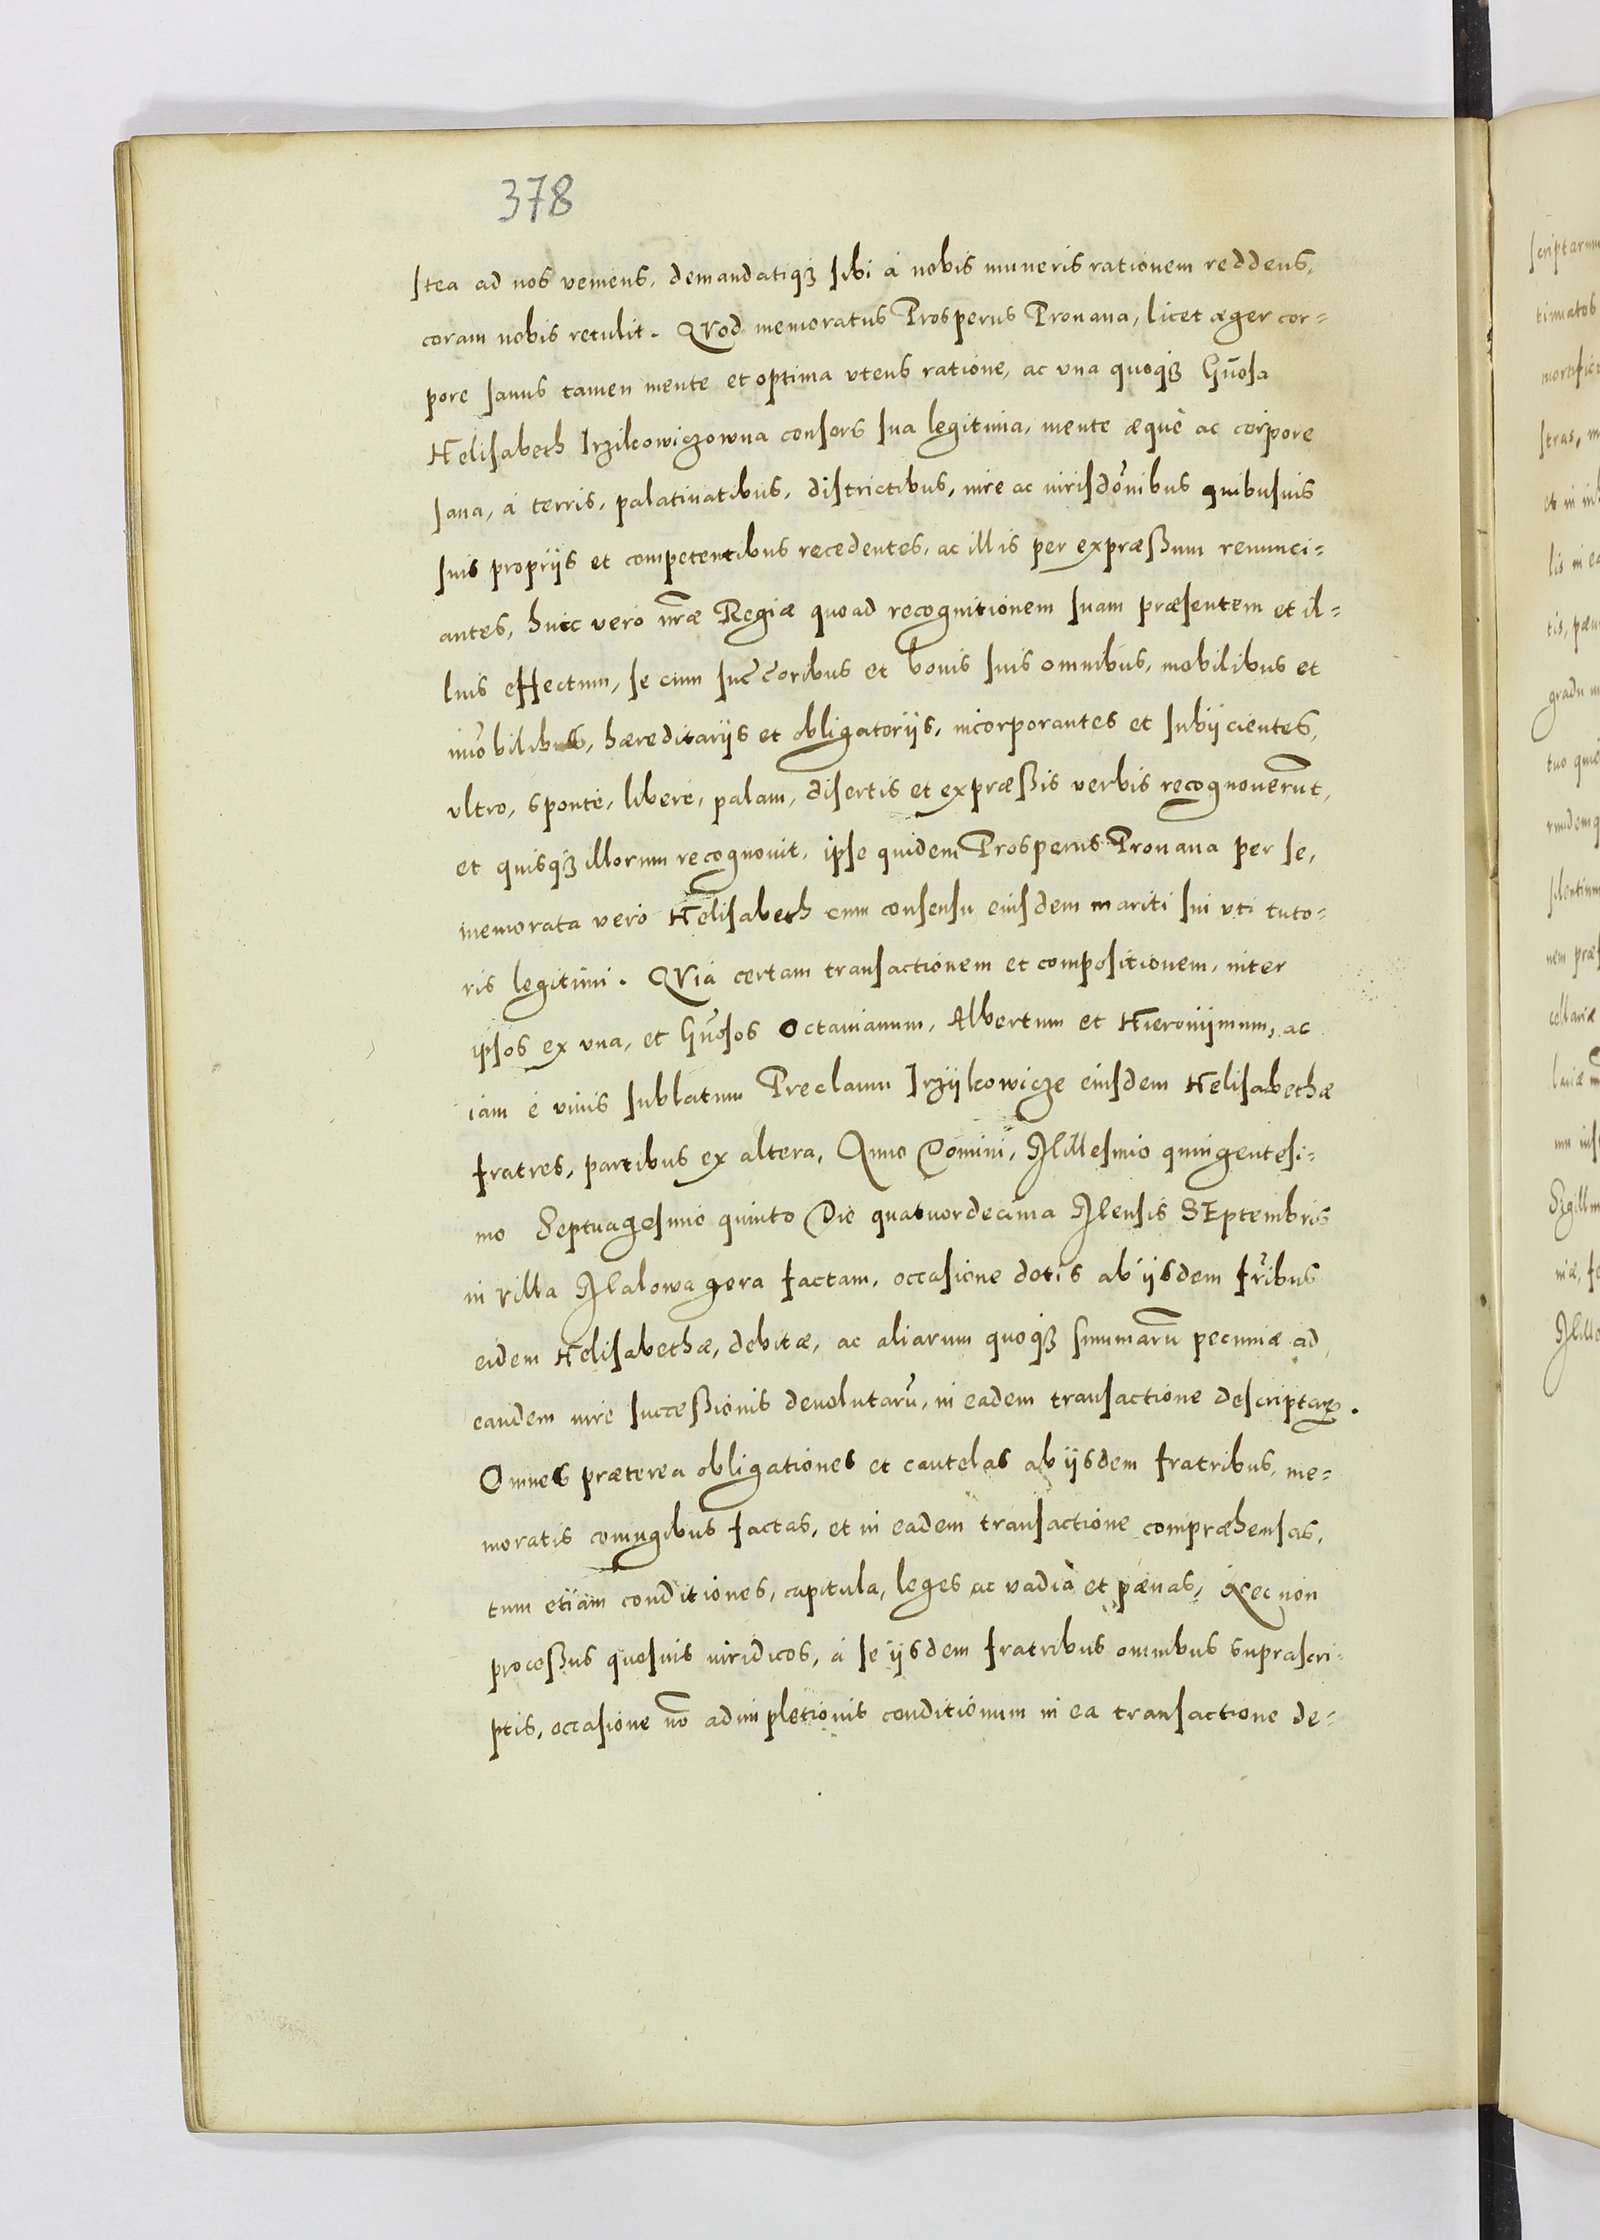 378
stea ad nos veniens, demandatiqꝫ sibi á nobis muneris rationem reddens,
coram nobis retulit. QVod memoratus Prosperus Prouana, licet æger cor=
pore sanus tamen mente et optima vtens ratione, ac vna quoqꝫ Gn̄osa
Helisabeth Irzikowiczowna consors sua legitima, mente æquè ac corpore
sana, á terris, palatinatibus, districtibus, iure ac iurisdōnibus quibusuis
suis proprijs et competentibus recedentes, ac illis per expræßum renunci=
antes, huic veró nr̄æ Regiæ quoad recognitionem suam præsentem et il=
lius effectum, se cum succ̄oribus et bonis suis omnibus, mobilibus et
im̄obilibus, hæreditarijs et obligatorijs, incorporantes et subijcientes,
vltro, sponté, liberé, palam, disertis et expræßis verbis recognouer̄unt,
et quisqꝫ illorum recognouit, ipse quidem Prosperus Prouana per se,
memorata veró Helisabeth cum consensu eiusdem mariti sui vti tuto=
ris legitimi. QViá certam transactionem et compositionem, inter
ipsos ex vna, et Gn̄osos Octauianum, Albertum et Hieronijmum, ac
iam é viuis sublatum Preclaum Irzijkowicze eiusdem Helisabethæ
fratres, partibus ex altera, Anno Domini, Millesimo quingentesi=
mo Septuagesimo quinto Die quatuordecima Mensis SEptembris
in villa Malowagora factam, occasione dotis ab ijsdem fr̄ibus
eidem Helisabethæ, debitæ, ac aliarum quoqꝫ summarū pecuniæ ad
eandem iure succeßionis deuolutarū, in eadem transactione descriptaꝝ.
Omnes præterea obligationes et cautelas ab ijsdem fratribus, me=
moratis coniugibus factas, et in eadem transactione compræhensas,
tum etiam conditiones, capitula, leges ac vadia et pænas, Nec non
proceßus quosuis iuridicos, á se ijsdem fratribus omnibus suprascri=
ptis, occasione nō adimpletionis conditionum in ea transactione de=